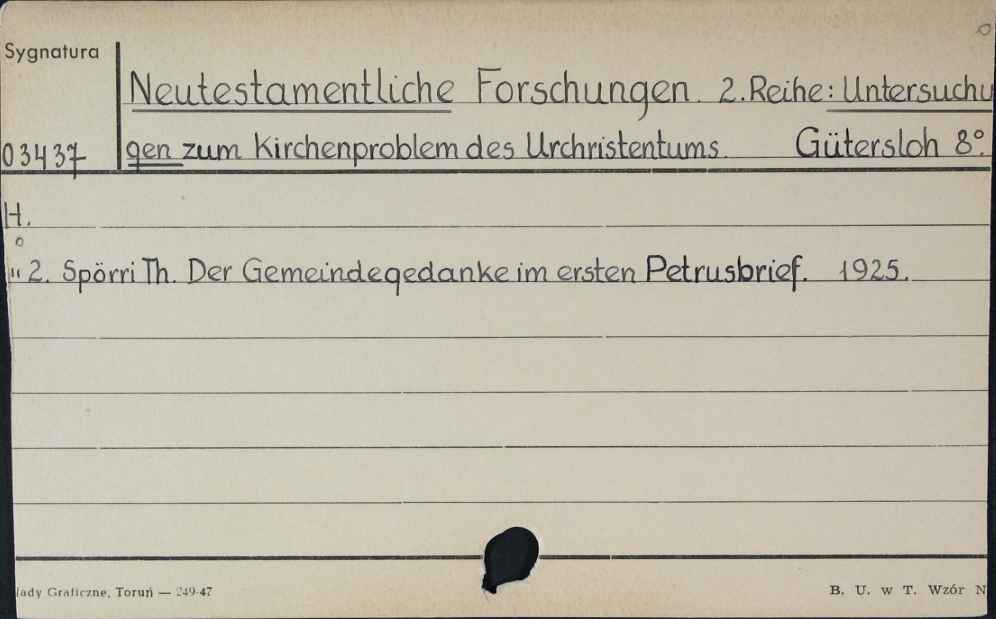 Sygnatura
Neutestamentliche Forschungen. 2.Reihe: Untersuchu
03437 gen zum Kirchenproblem des Urchristentums. Gütersloh 8°.
H.
" 2. Spörri Th. Der Gemeindegedanke im ersten Petrusbrief. 1925.
łady Graficzne, Toruń — 249-47 B. U. w T. Wzór N